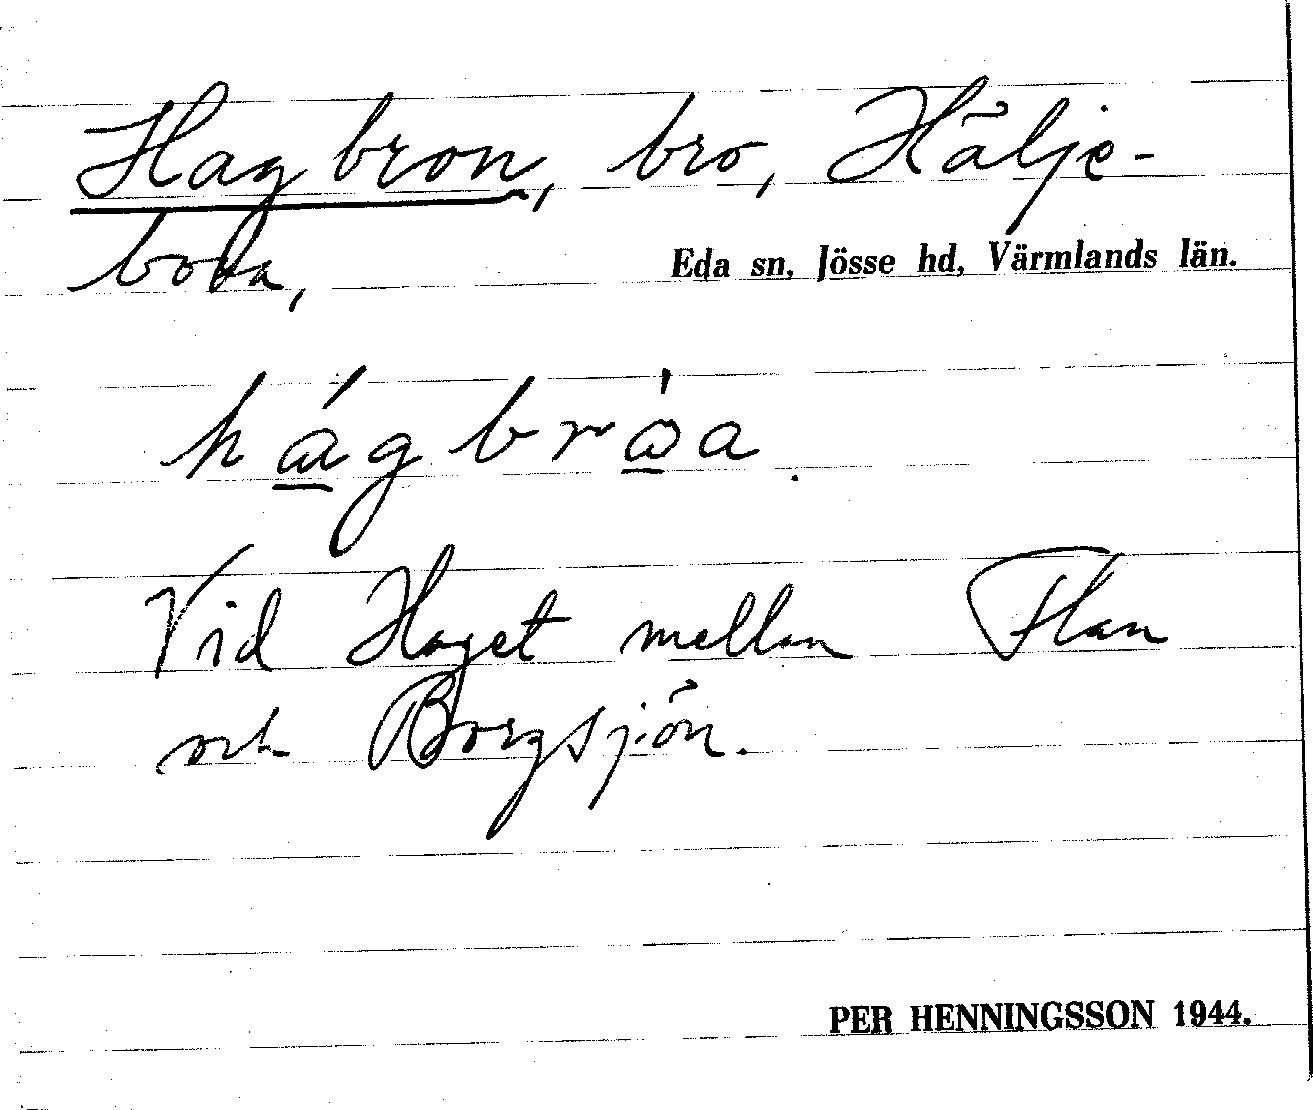 Hagbron, bro, Hälje-
boda,
Eda sn, Jösse hd, Värmlands län.
hágbrǿa.
Vid Haget mellan Flan
och Borgsjön.
PER HENNINGSSON 1944.